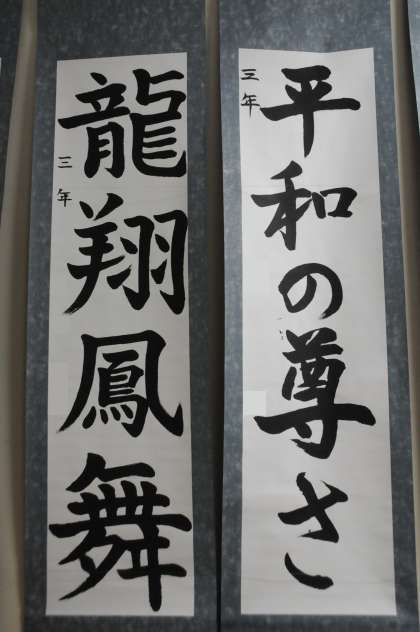 平和の尊さ
三年
龍翔鳳舞
三年